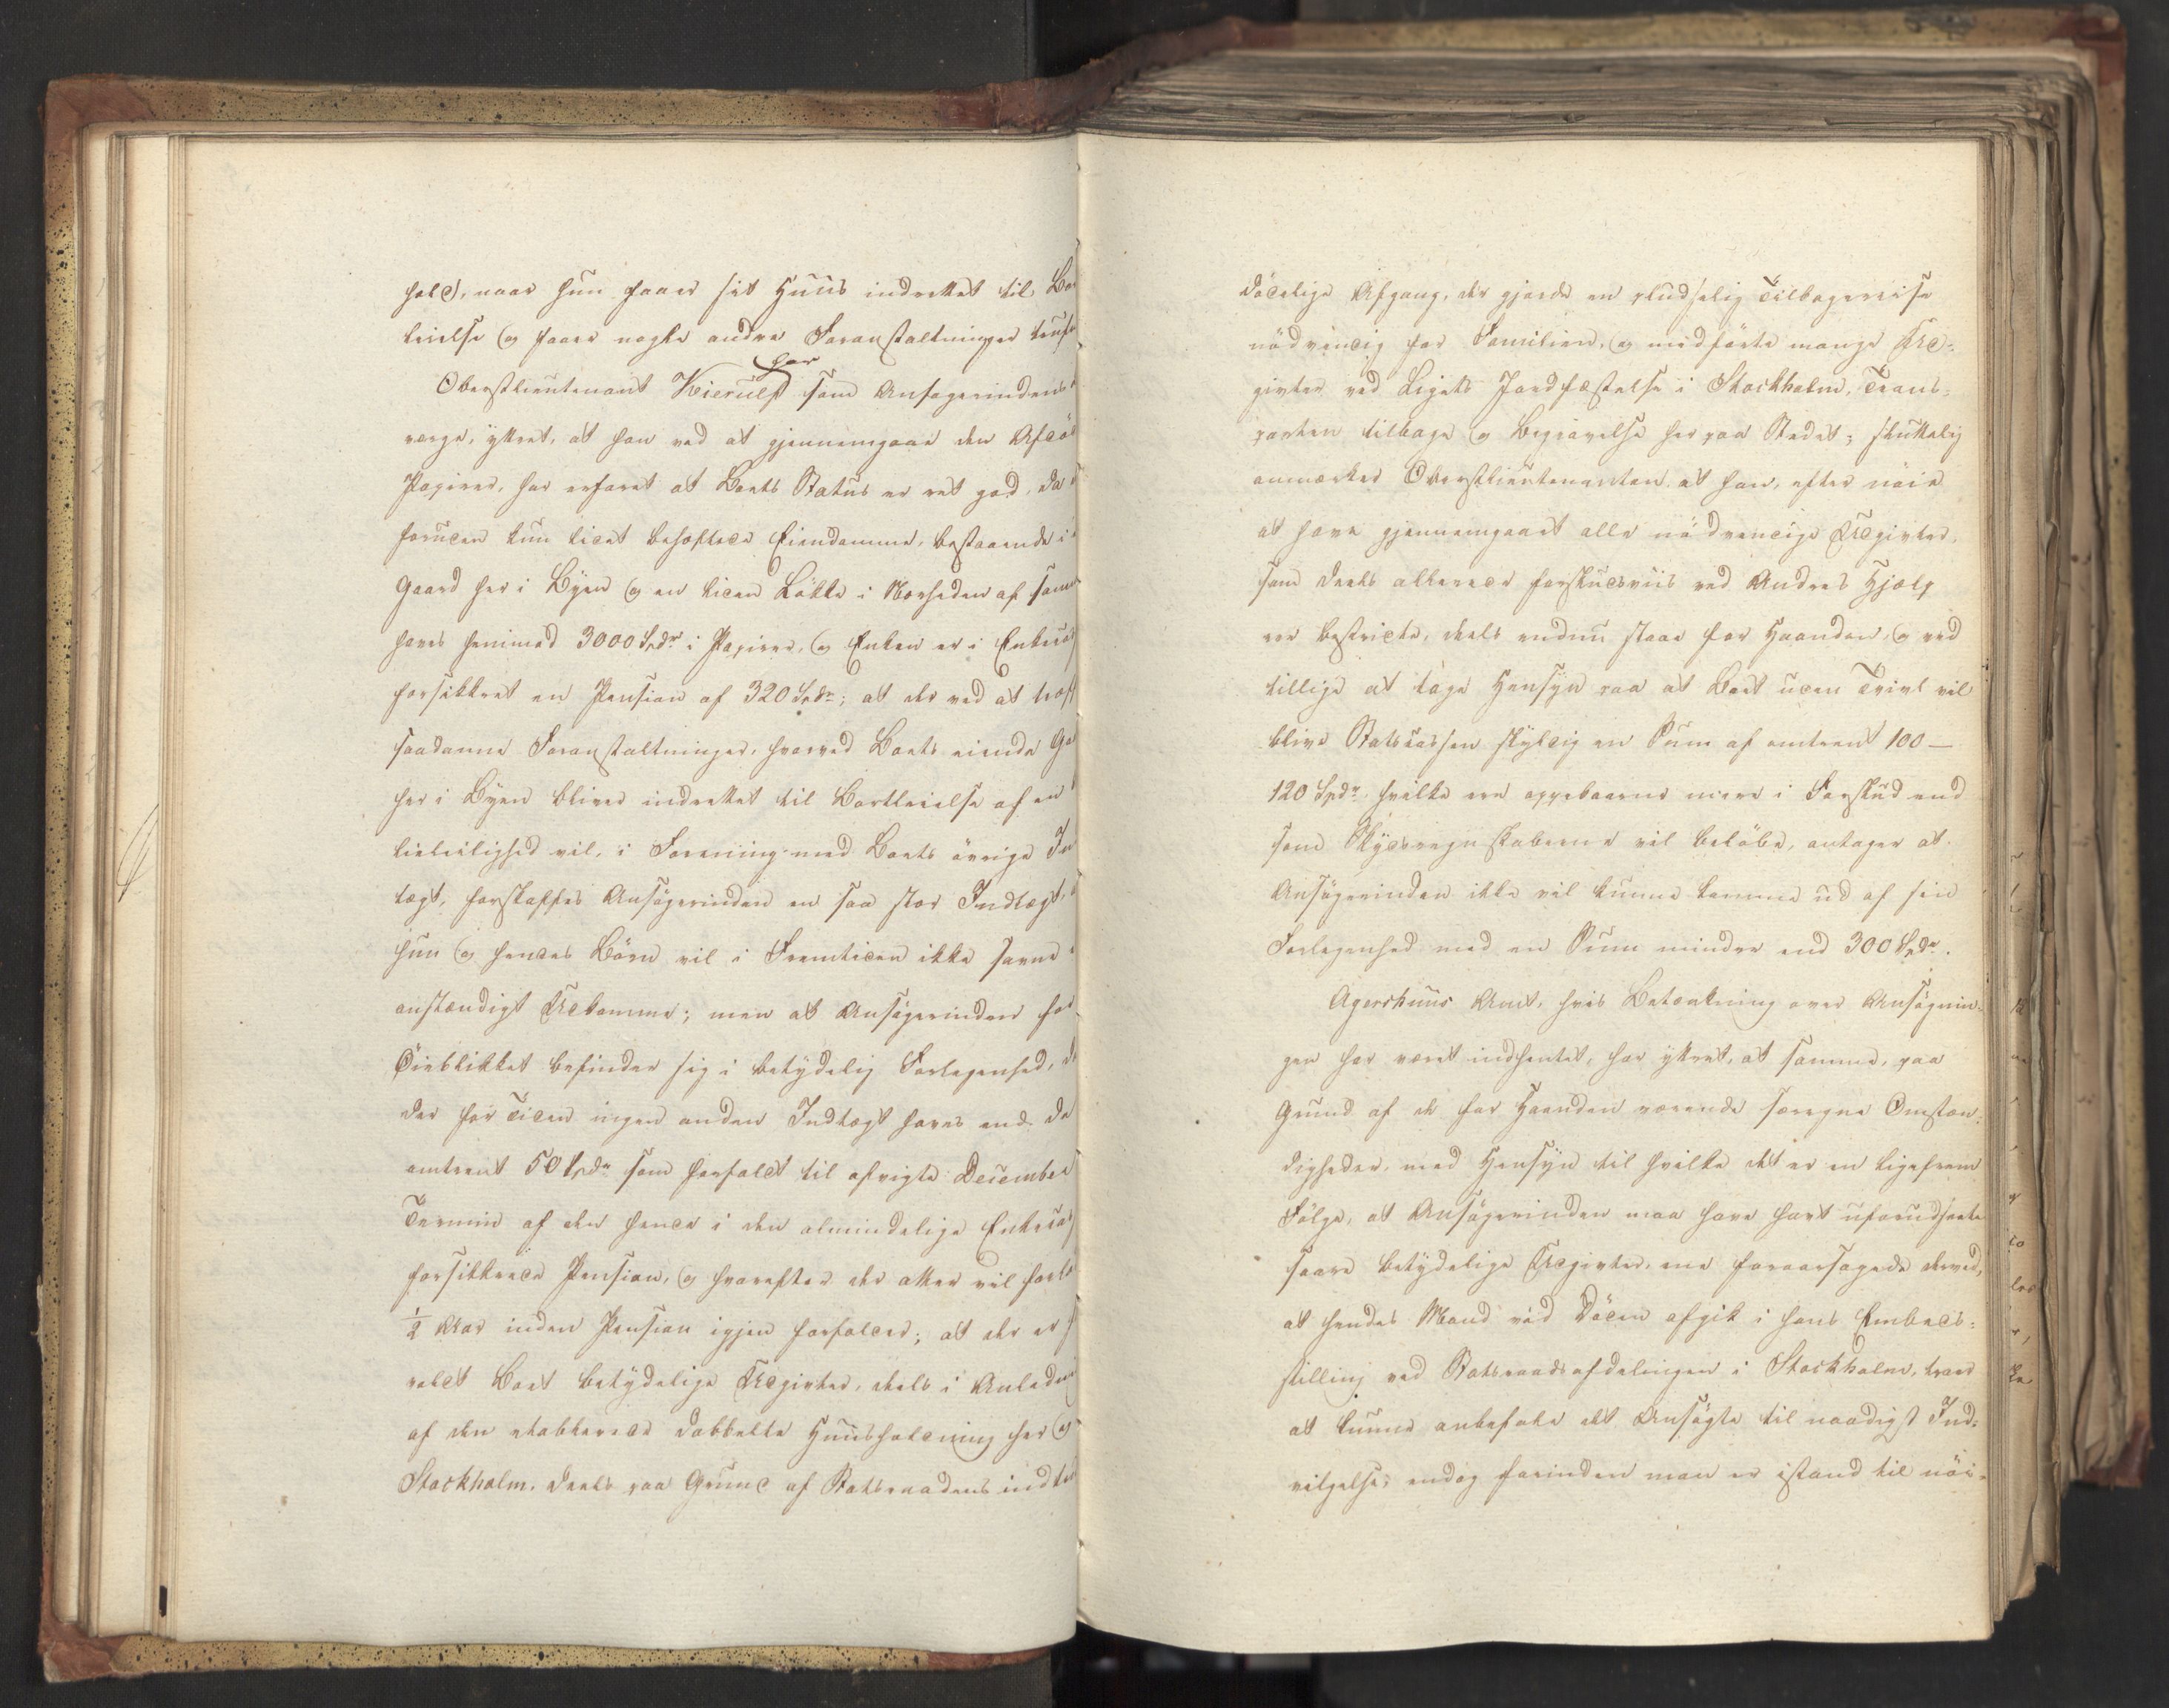 hold, naar hun faaer sit Huus indrettet til Bor
leielse og faaer nogle andre Foranstaltninger truf
har
Oberstlieutenant Kierulf som Ansøgerindens
værge, yttret, at han ved at gjennemgaae den Afdø
Papirer, har erfaret at Boets Status er ret god, da
foruden kun lidet behæftede Eiendomme, bestaaende i
Gaard her i Byen og en liden Løkke i Nærheden af sam
haves henimod 3000 Spdr i Papirer, og Enken er i Enkecas
forsikkret en Pension af 320 Spdr; at der ved at træf
saadanne Foranstaltninger, hvorved Boets eiende Ga
her i Byen bliver indrettet til Bortleielse af en
Leielighed vil, i Forening med Boets øvrige In
tægt, forskaffes Ansøgerinden en saa stor Indtægt,
hun og hendes Børn vil i Fremtiden ikke savne
anstændigt Udkomme; men at Ansøgerinden for
Öieblikket befinder sig i betydelig Forlegenhed, d
der for Tiden ingen anden Indtægt haves end de
omtrent 50 Spdr som forfaldt til afvigte December
Termin af den hende i den almindelige Enkecas
forsikkrede Pension, og hvorefter der atter vil forlø
1/2 Aar inden Pension igjen forfalder; at der er
voldt Boet betydelige Udgivter, deels i Anledn
af den etablerede dobbelte Huusholdning her og
Stockholm, deels paa Grund af Statsraadens indtr
dödelige Afgang, der gjorde en pludselig Tilbagereise
nödvendig for Familien, og medförte mange Ud-
givter ved Ligets Jordfæstelse i Stockholm, Trans-
porten tilbage og Begravelse her paa Stedet; sluttelig
anmærker Oberstlieutenanten at han, efter nöie
at have gjennemgaaet alle nödvendige Udgivter,
som deels allerede forskudsviis ved Andres Hjælp
ere bestridte, deels endnu staae for Haanden, og ved
tillige at tage Hensyn paa at Boet uden Tvivl vil
blive Statscassen skyldig en Sum af omtrent 100 –
120 Spdr hvilke ere oppebaarne mere i Forskud end
som Skydsregnskaberne vil belöbe, antager at
Ansögerinden ikke vil kunne komme ud af sin
Forlegenhed med en Sum mindre end 300 Spdr.
Agershuus Amt, hvis Betænkning over Ansögnin-
gen har været indhentet, har yttret, at samme, paa
Grund af de for Haanden værende særegne Omstæn-
digheder, med Hensyn til hvilke det er en ligefrem
Fölge, at Ansögerinden maa have havt uforudseete
saare betydelige Udgivter, ene foraarsagede derved,
at hendes Mand ved Döden afgik i hans Embeds-
stilling ved Statsraadsafdelingen i Stockholm, troer
at kunne anbefale det Ansögte til naadigst Ind-
vilgelse; endog forinden man er istand til nöi-